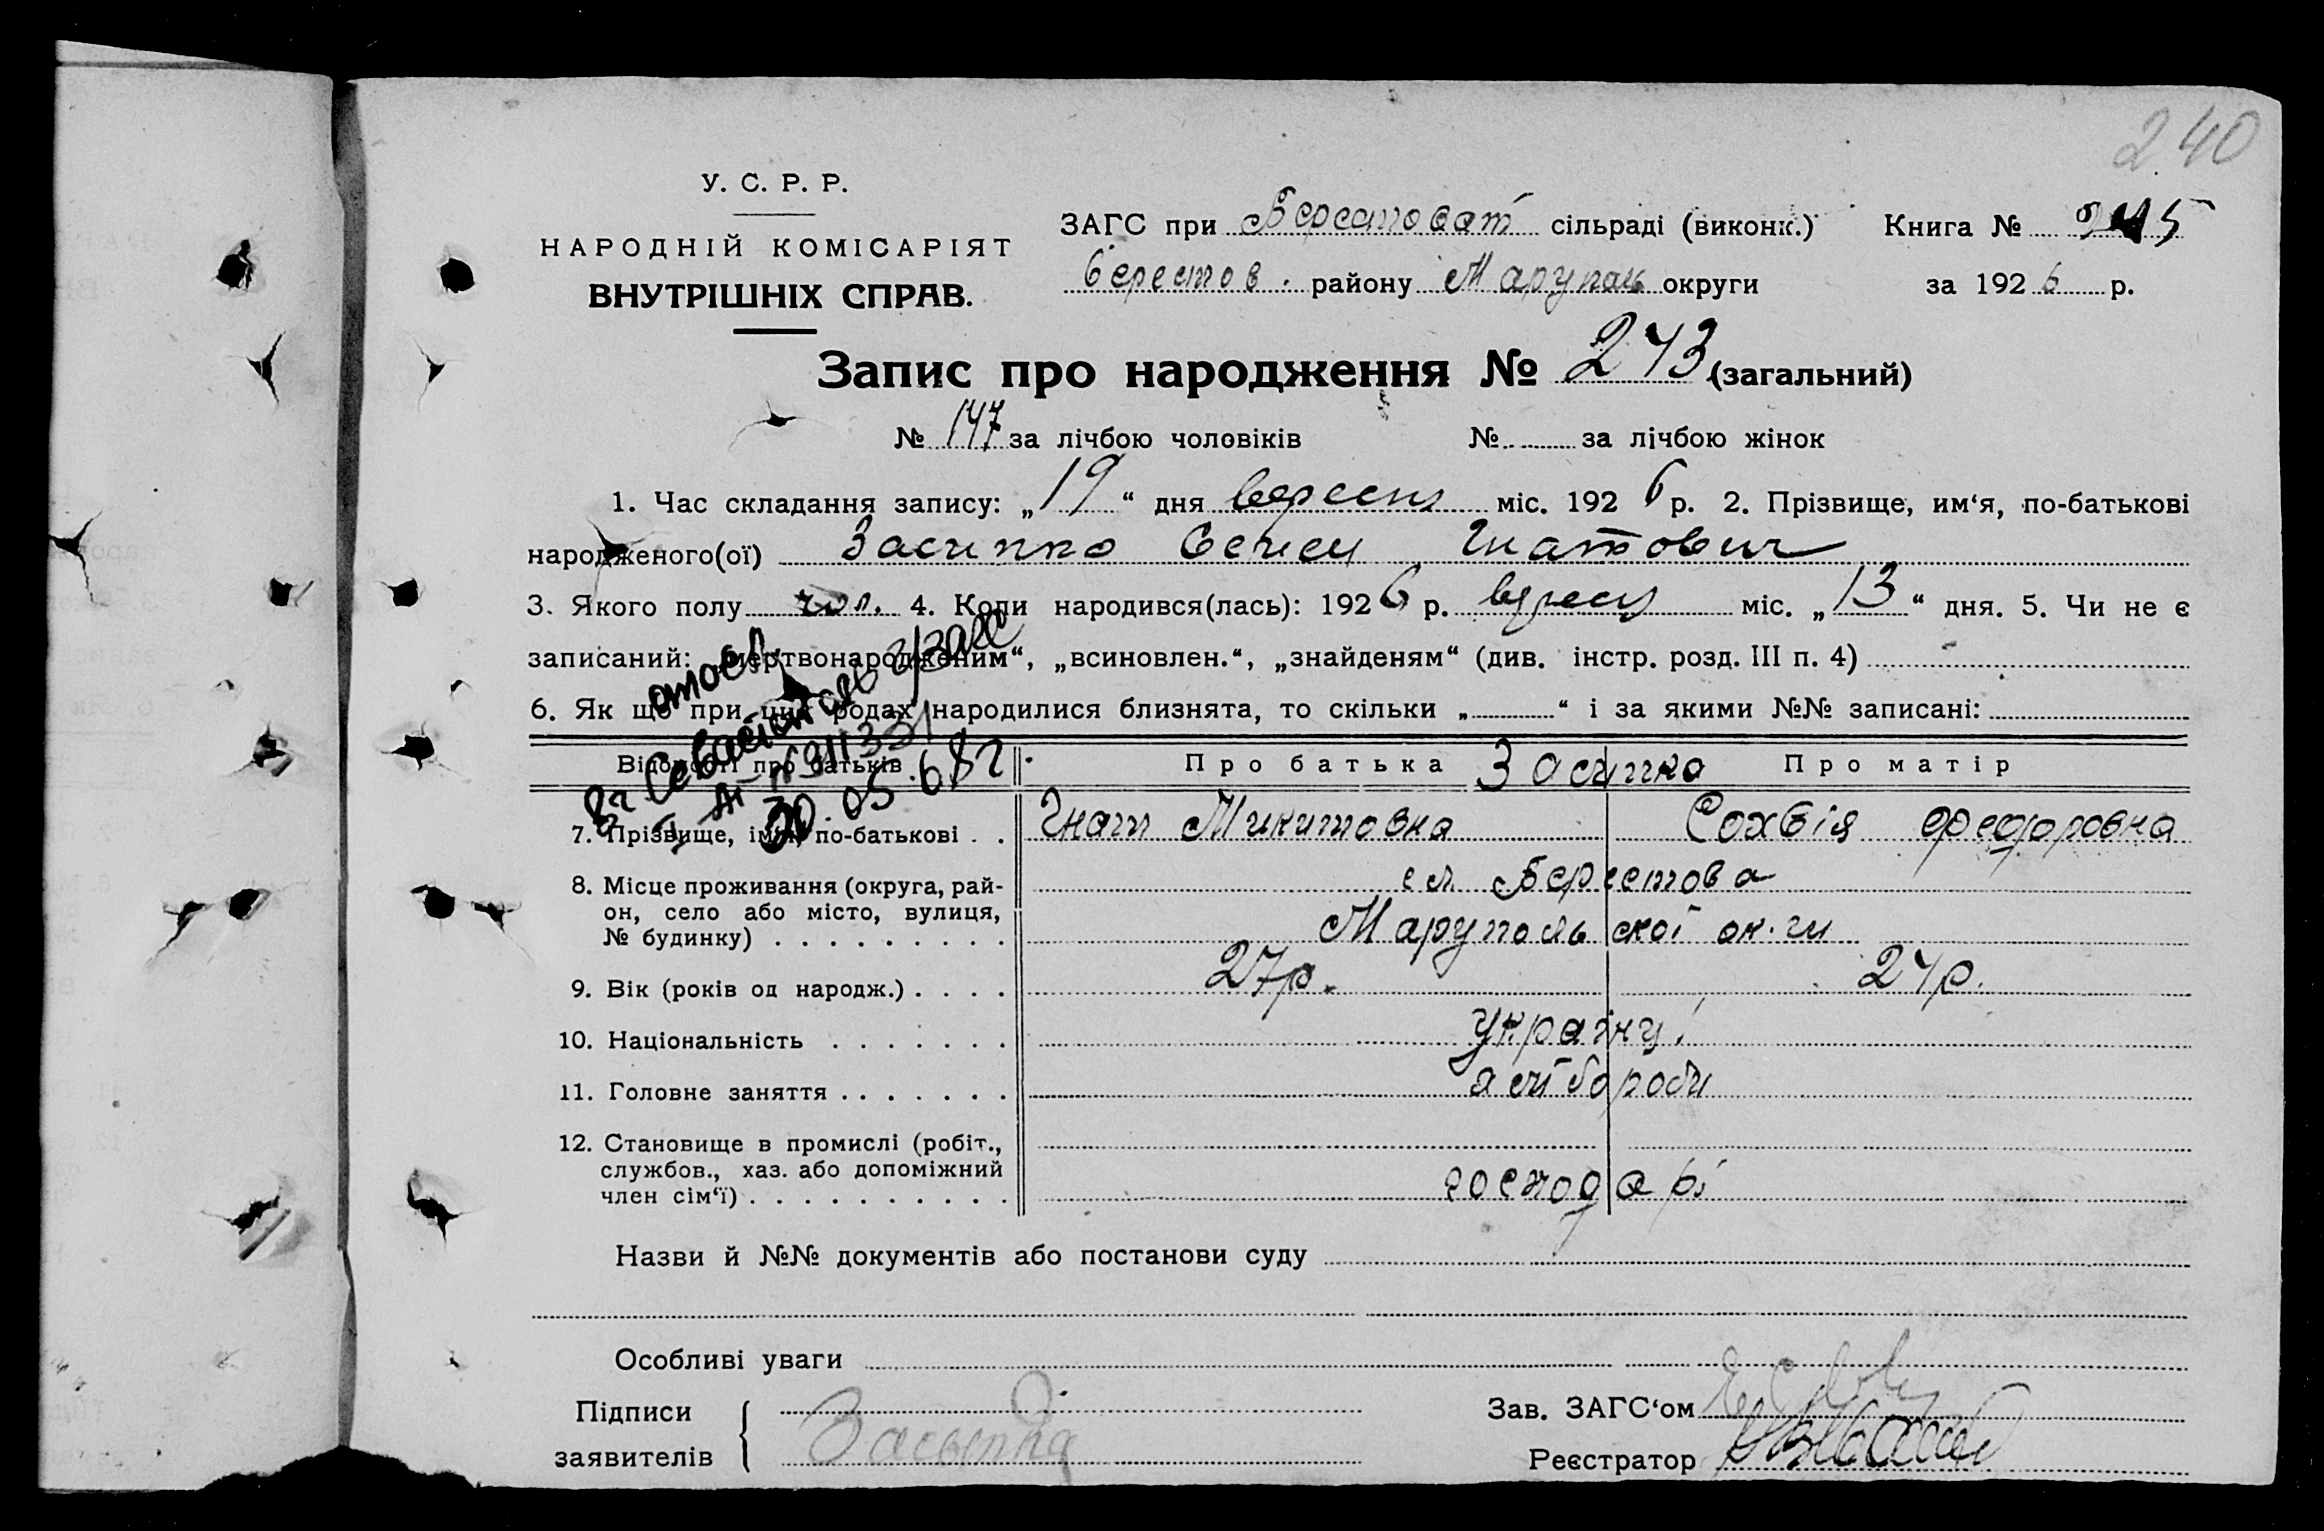 240
У. С. Р. Р.
НАРОДНІЙ КОМІСАРІЯТ
ВНУТРІШНІХ СПРАВ.
ЗАГС при Берестоват сільраді (виконк.) Книга №
берестов. району Маруполь округи за 1926 р.
Запис про народження № 243 (загальний)
№ 147 за лічбою чоловіків № за лічбою жінок
1. Час складання запису: „19“ дня вересня міс. 1926 р. 2. Прізвище, им‘я, по-батькові
народженого(ої) Засипко Гнатович
3. Якого полу чол. 4. Коли народився(лась): 1926 р. вересня міс. „13“ дня. 5. Чи не є
записаний: „мертвонародженим“, „всиновлен.“, „знайденям“ (див. інстр. розд. III п. 4)
6. Як що при цих родах народилися близнята, то скільки „ “ і за якими №№ записані:
Відомості про батьків Про батька Засипко Про матір
7. Прізвище, ім‘я, по-батькові . . Гнат Микитовка Сохвія Федоровна
8. Місце проживання (округа, рай-
он, село або місто, вулиця,
№ будинку) . . . . . . . . .
ст. Берестова
Марупольської ок-ги
9. Вік (років од народж.) . . . . 27 р. 24 р.
10. Національність . . . . . . . українці
11. Головне заняття . . . . . . . хліборобы
12. Становище в промислі (робіт.,
службов., хаз. або допоміжний
член сім‘ї) . . . . . . . . . . . господарі
Назви й №№ документів або постанови суду
Особливі уваги
Підписи
заявителів Засыпка
Зав. ЗАГС‘ом
Реєстратор